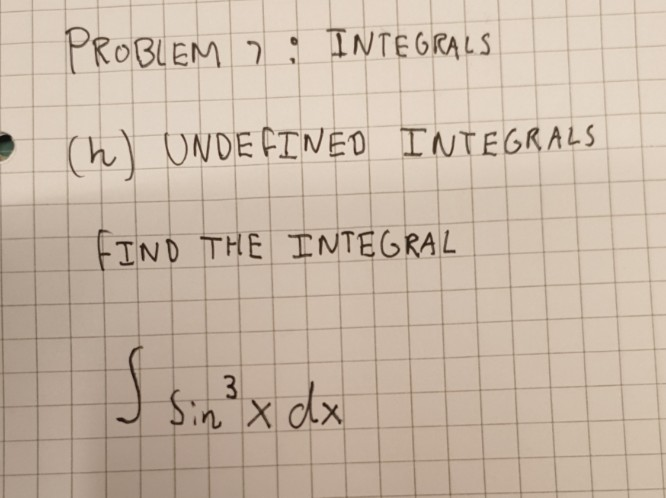 PROBLEM 7 : INTEGRALS
(h) UNDEFINED INTEGRALS
FIND THE INTEGRAL
∫ sin³ x dx